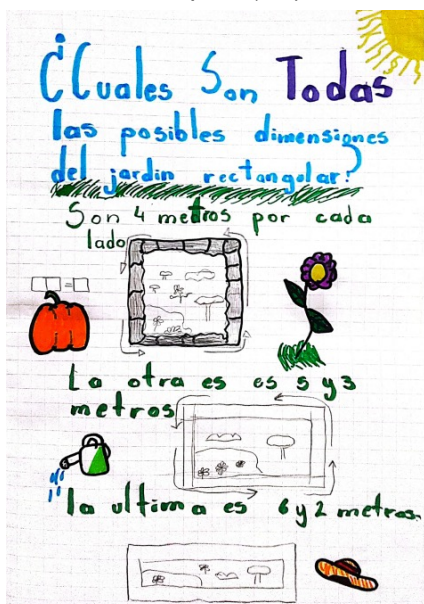 ¿Cuales Son Todas
las posibles dimensiones
del jardin rectangular?
Son 4 metros por cada
lado
La otra es es 5 y 3
metros
la ultima es 6 y 2 metros.